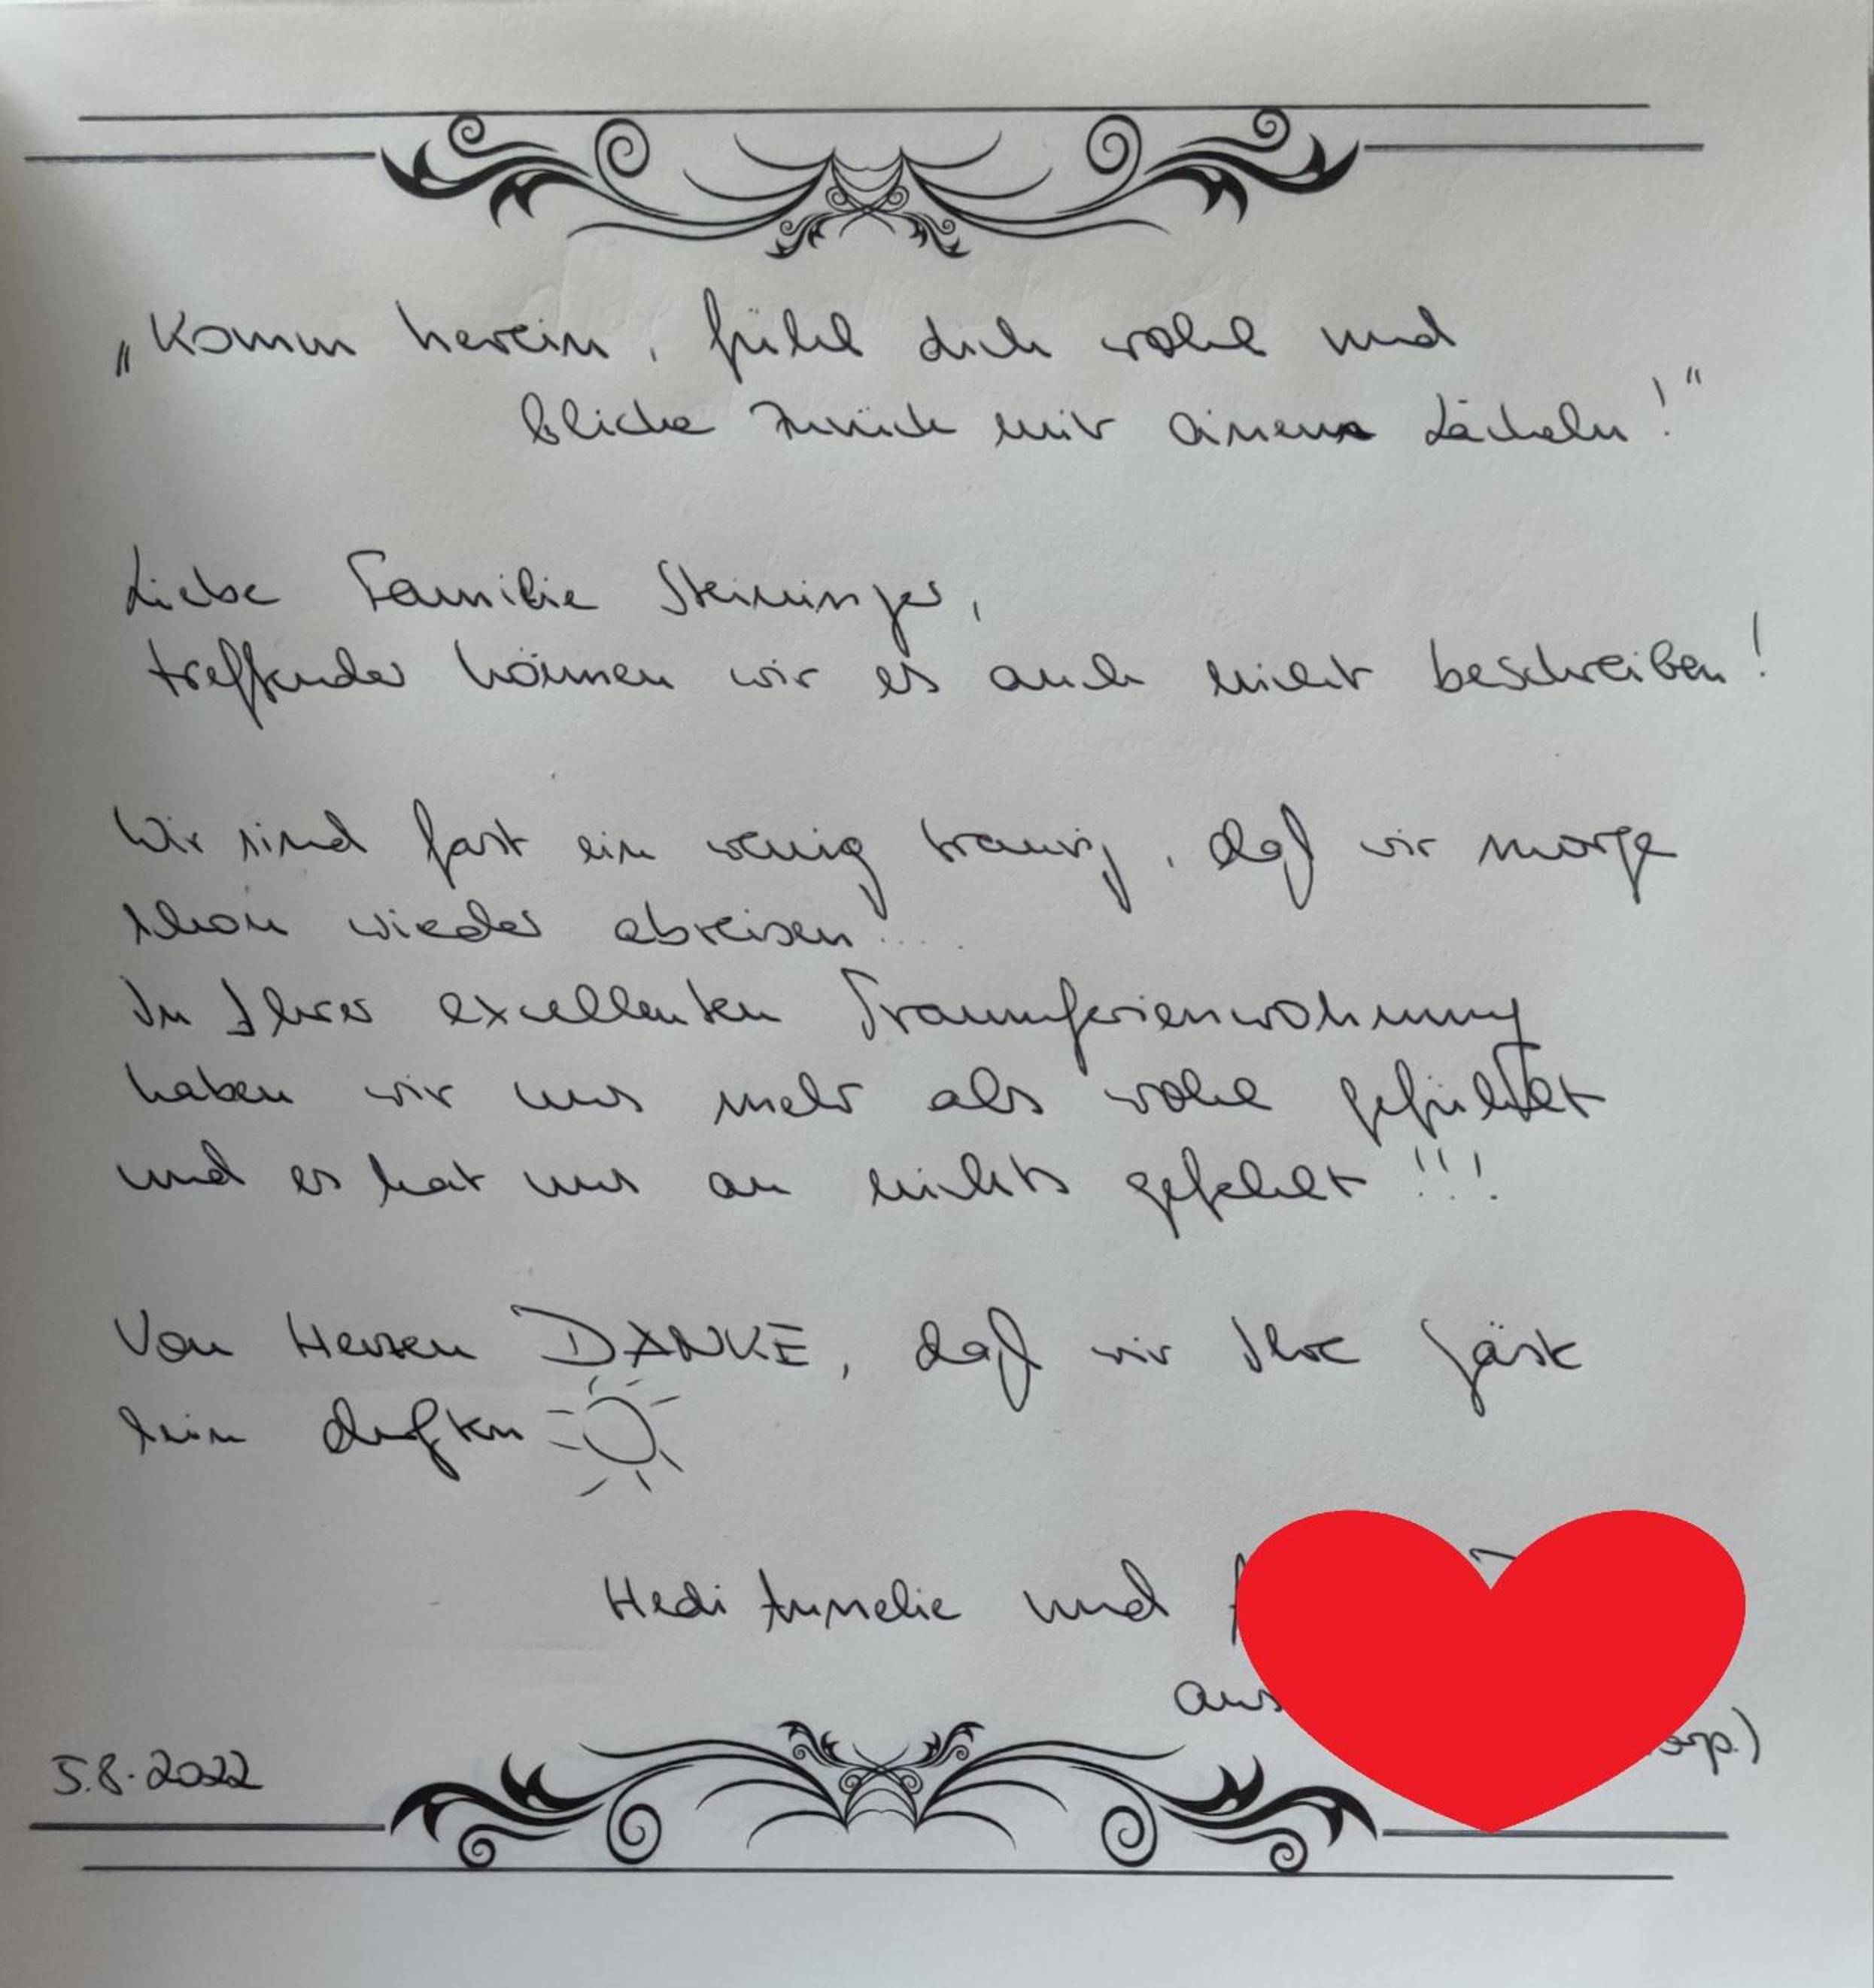 „Komm herein, fühl dich wohl und
blicke zurück mit einem Lächeln!"
Liebe Familie Steininger,
treffender können wir es auch nicht beschreiben!
Wir sind fast ein wenig traurig, daß wir morgen
schon wieder abreisen!...
In Ihrer excellenten Traumferienwohnung
haben wir uns mehr als wohl gefühlt
und es hat uns an nichts gefehlt!!!
Von Herzen DANKE, daß wir Ihre Gäste
sein durften
Hedi und
aus
5.8.2022